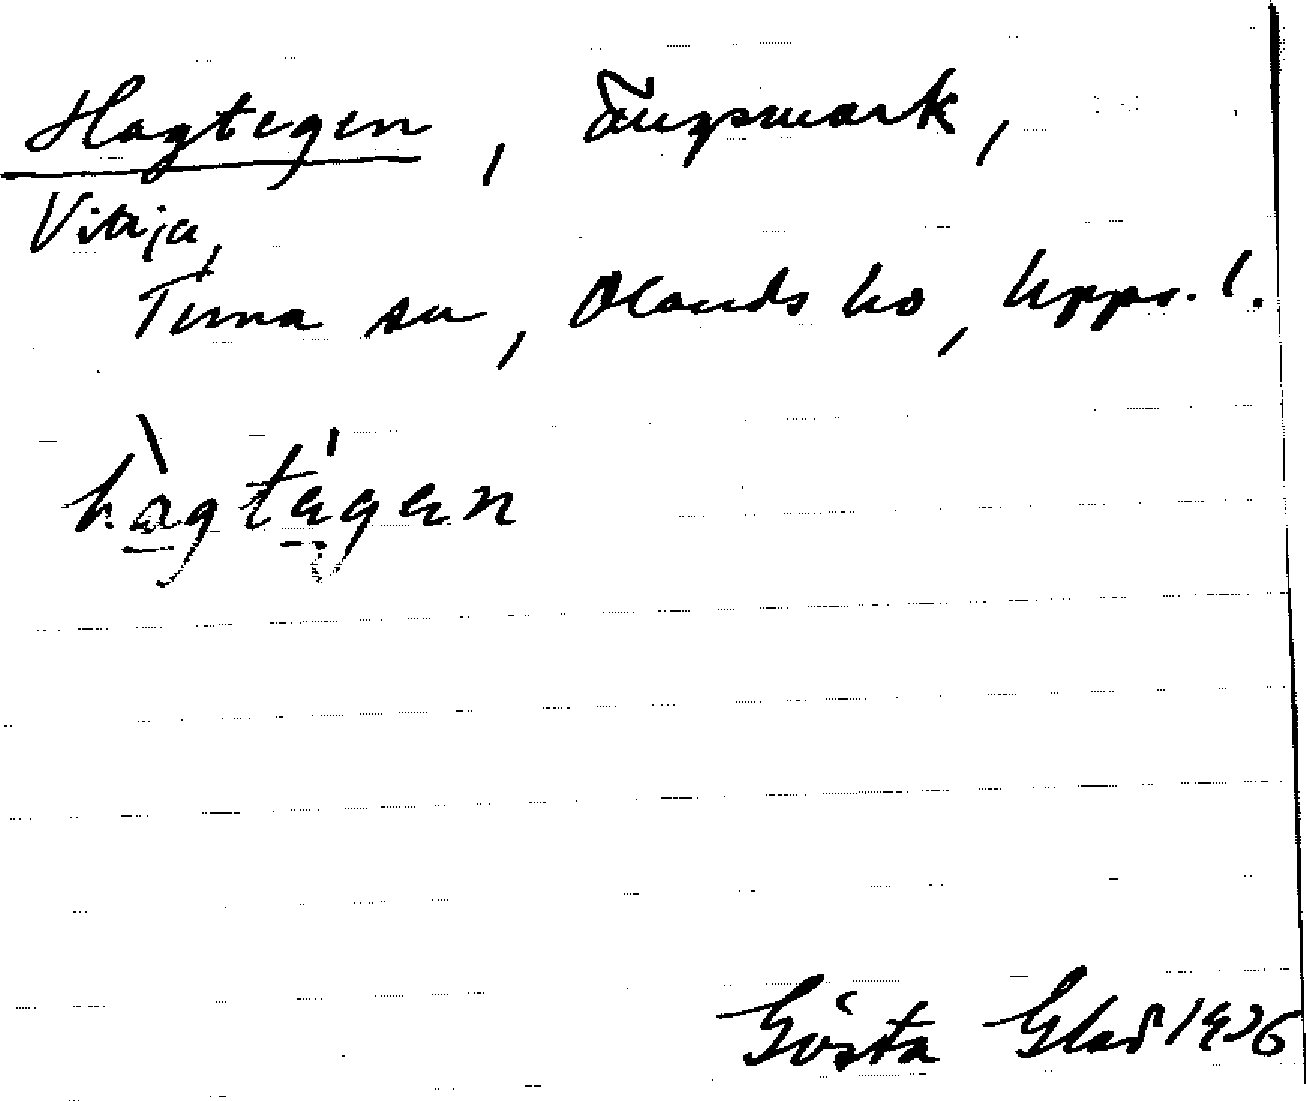 Hagtegen, Ängsmark,
Vitsja,
Tuna sn, Olands hd, Upps. l.
hàgtégen
Gösta Glad 1926